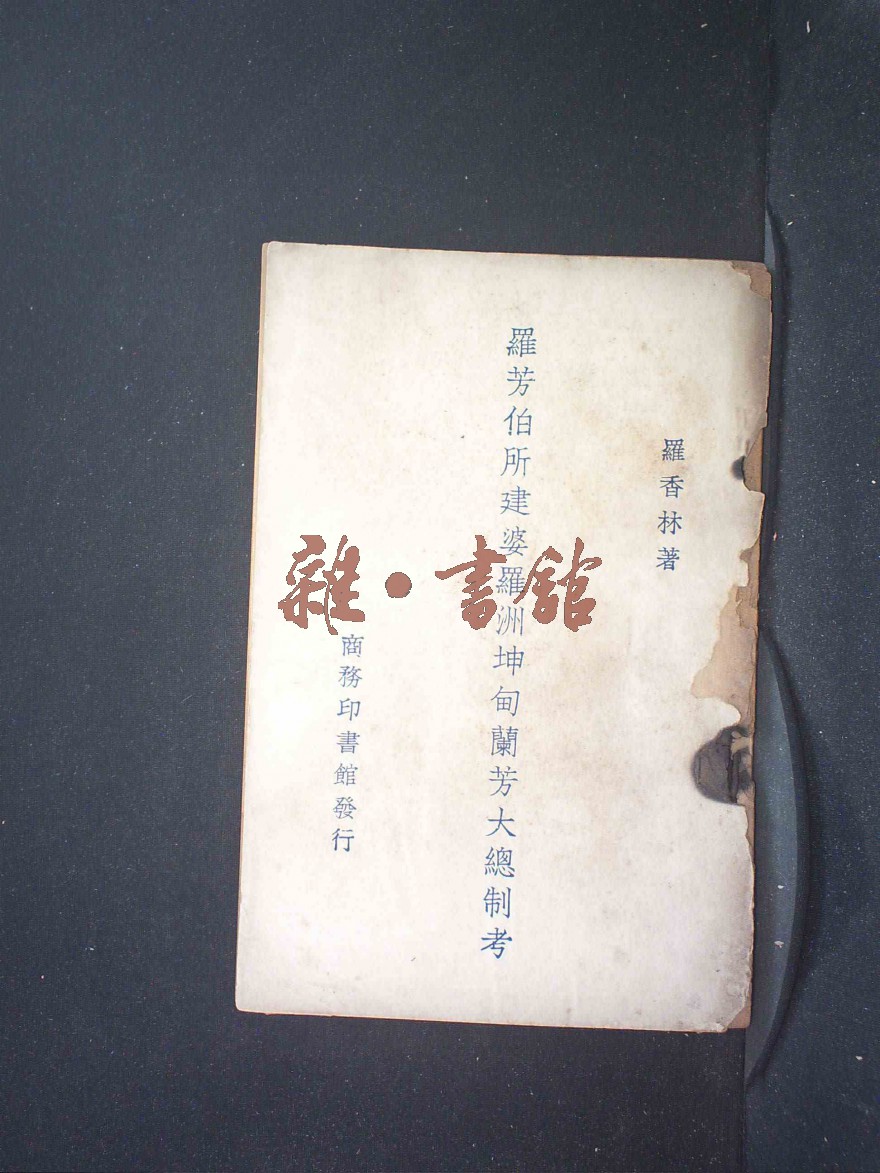 羅香林著
羅芳伯所建婆羅洲坤甸蘭芳大總制考
商務印書館發行
雜•書館